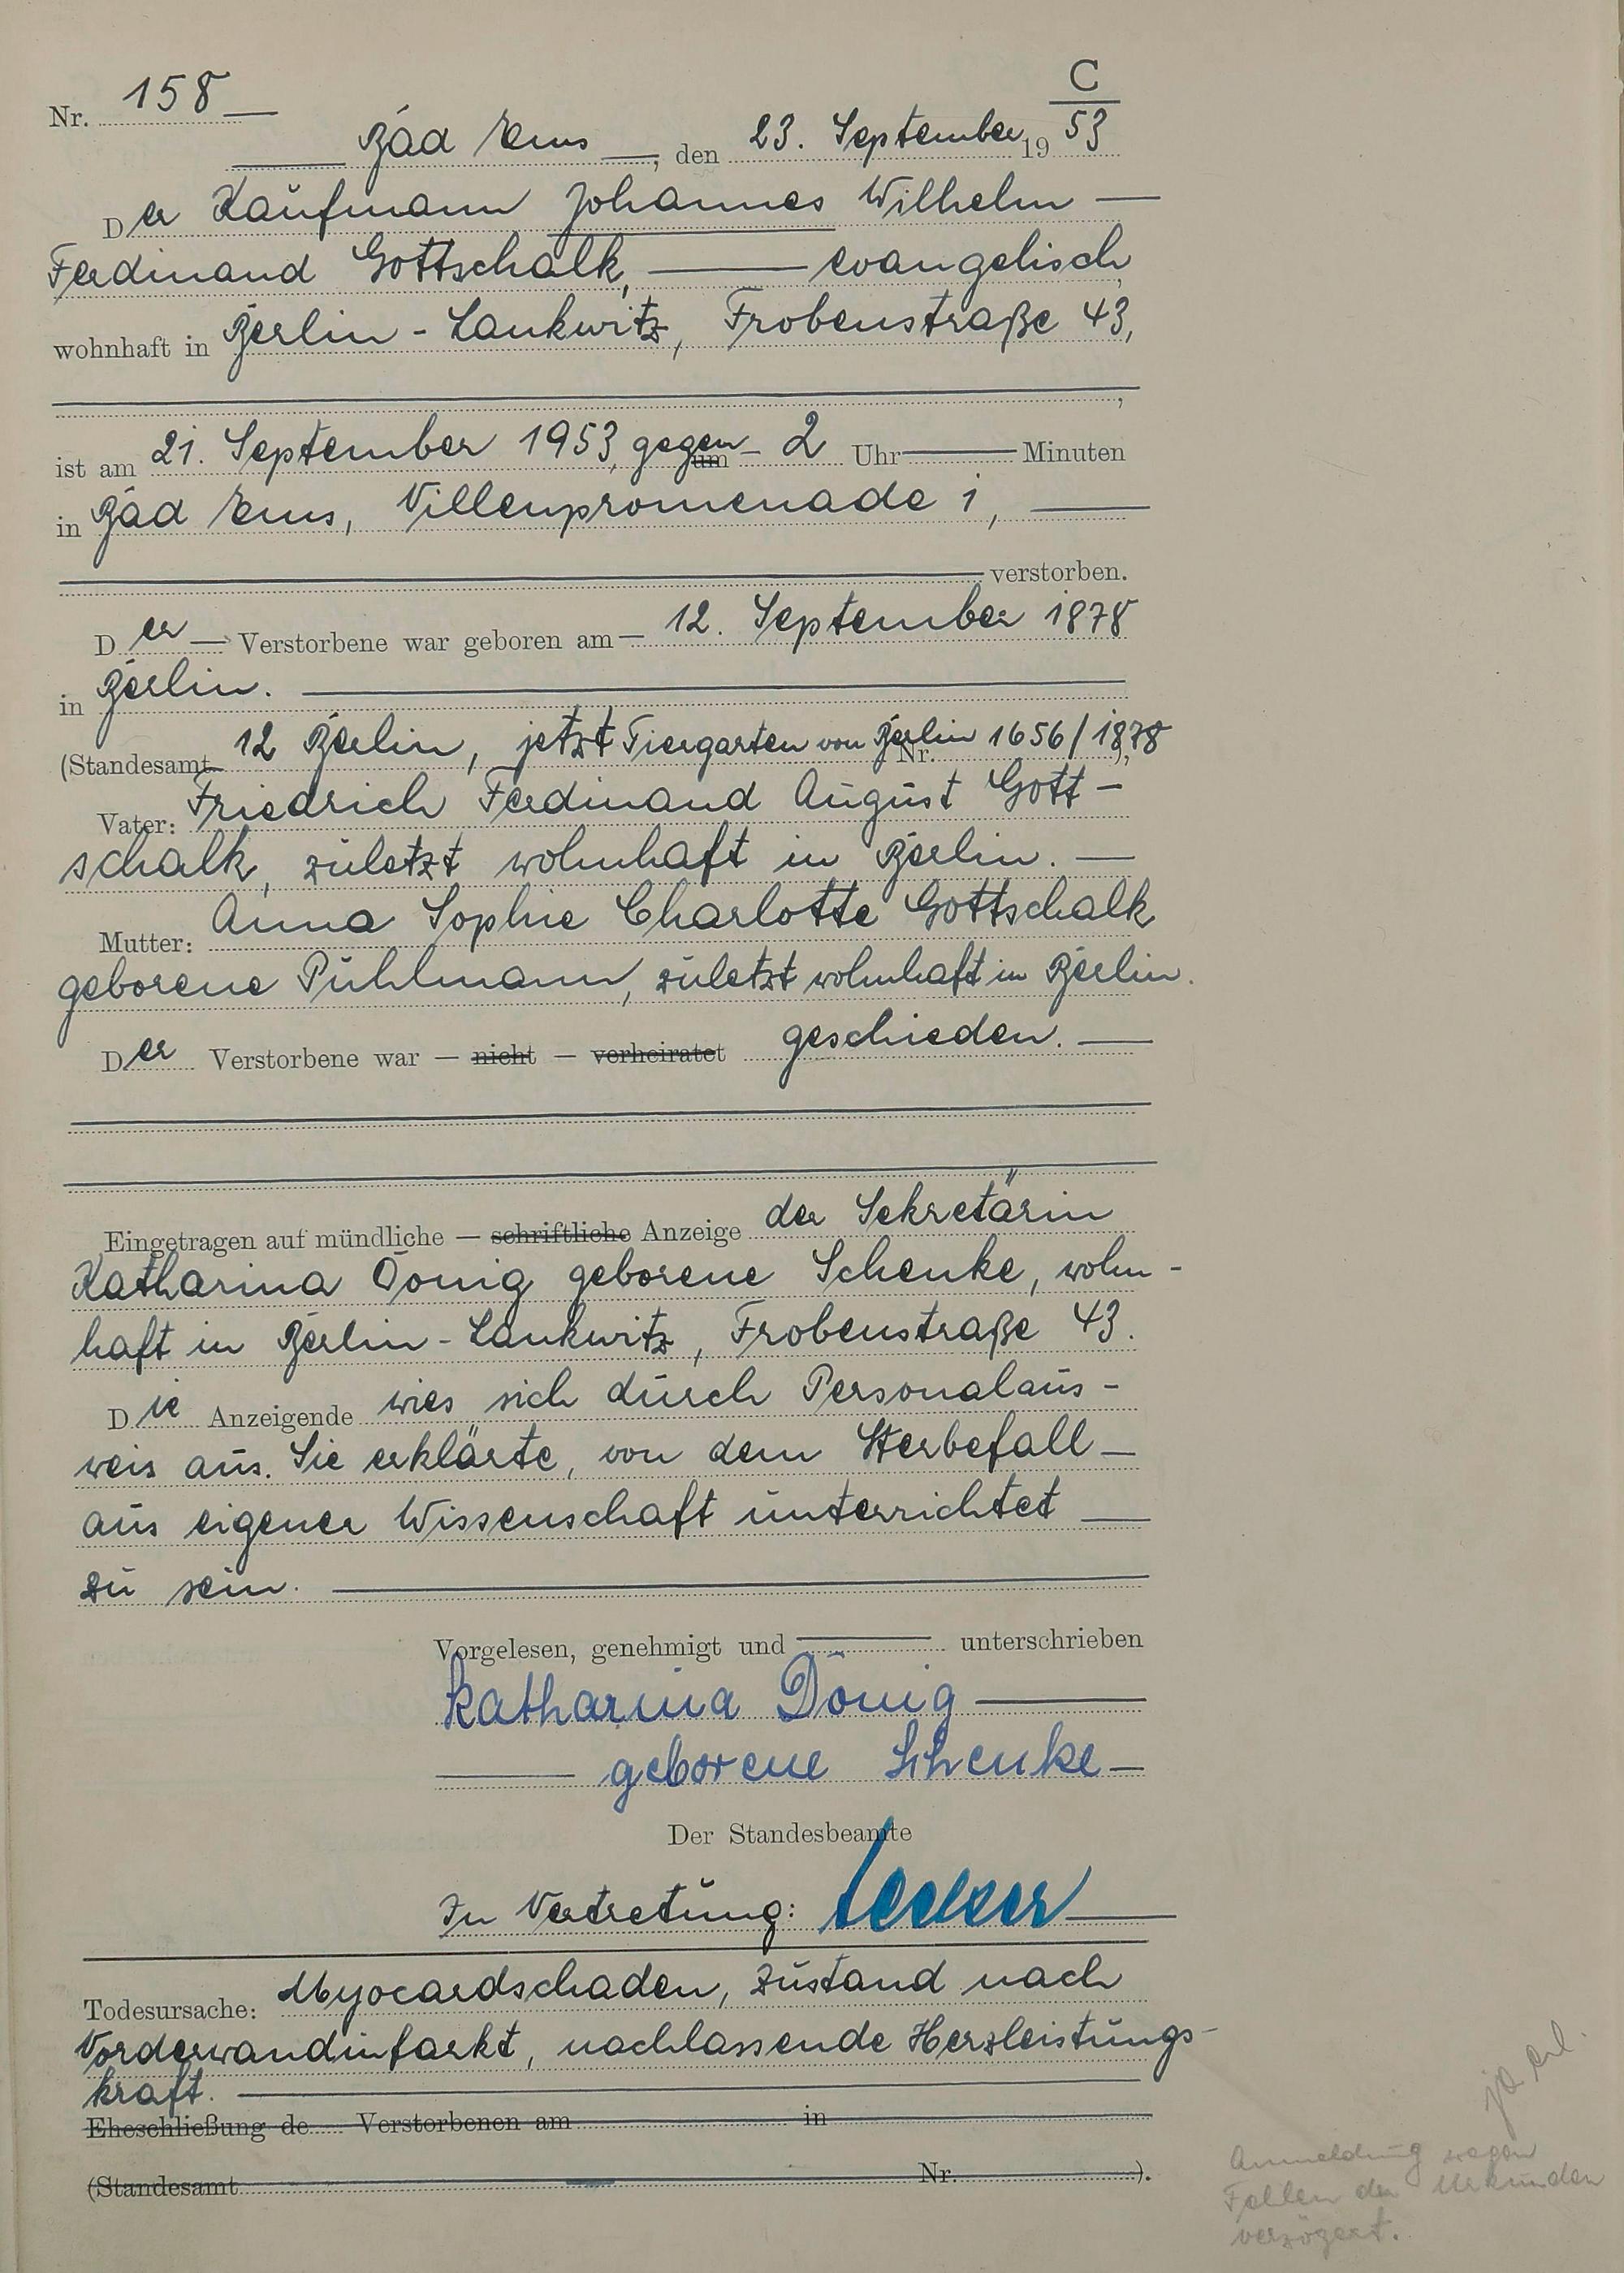 C
Nr. 158
Bad Ems, den 23. September 19 53
Der Kaufmann Johannes Wilhelm
Ferdinand Gottschalk, evangelisch,
wohnhaft in Berlin-Lankwitz, Frobenstraße 43,
,
ist am 21. September 1953, gegen um 2 Uhr Minuten
in Bad Ems, Villenpromenade 1,
verstorben.
Der Verstorbene war geboren am 12. September 1878
in Berlin.
(Standesamt 12 Berlin, jetzt Tiergarten von Berlin Nr. 1656/1878),
Vater: Friedrich Ferdinand August Gott-
schalk, zuletzt wohnhaft in Berlin.
Mutter: Anna Sophie Charlotte Gottschalk
geborene Pühlmann, zuletzt wohnhaft in Berlin.
Der Verstorbene war — nicht — verheiratet geschieden.
Eingetragen auf mündliche — schriftliche Anzeige der Sekretärin
Katharina Dönig geborene Schenke, wohn-
haft in Berlin-Lankwitz, Frobenstraße 43.
Die Anzeigende wies sich durch Personalaus-
weis aus. Sie erklärte, von dem Sterbefall
aus eigener Wissenschaft unterrichtet
zu sein.
Vorgelesen, genehmigt und unterschrieben
Katharina Dönig
geborene Schenke
Der Standesbeamte
In Vertretung:
Todesursache: Myocardschaden, Zustand nach
Vorderwandinfarkt, nachlassende Herzleistungs-
kraft.
Eheschließung de Verstorbenen am in
(Standesamt Nr. ).
Anmeldung wegen
Fehlen der Urkunden
verzögert.